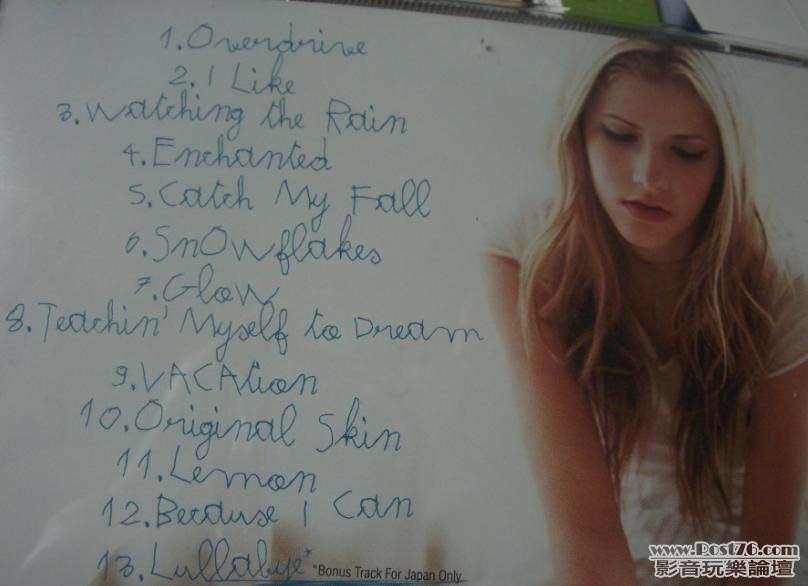 1. Overdrive
2. I Like
3. Watching the Rain
4. Enchanted
5. Catch My Fall
6. Snowflakes
7. Glow
8. Teachin' Myself to Dream
9. VACAtion
10. Original Skin
11. Lemon
12. Because I Can
13. Lullabye*
*Bonus Track For Japan Only
www.Post76.com
影音玩樂論壇